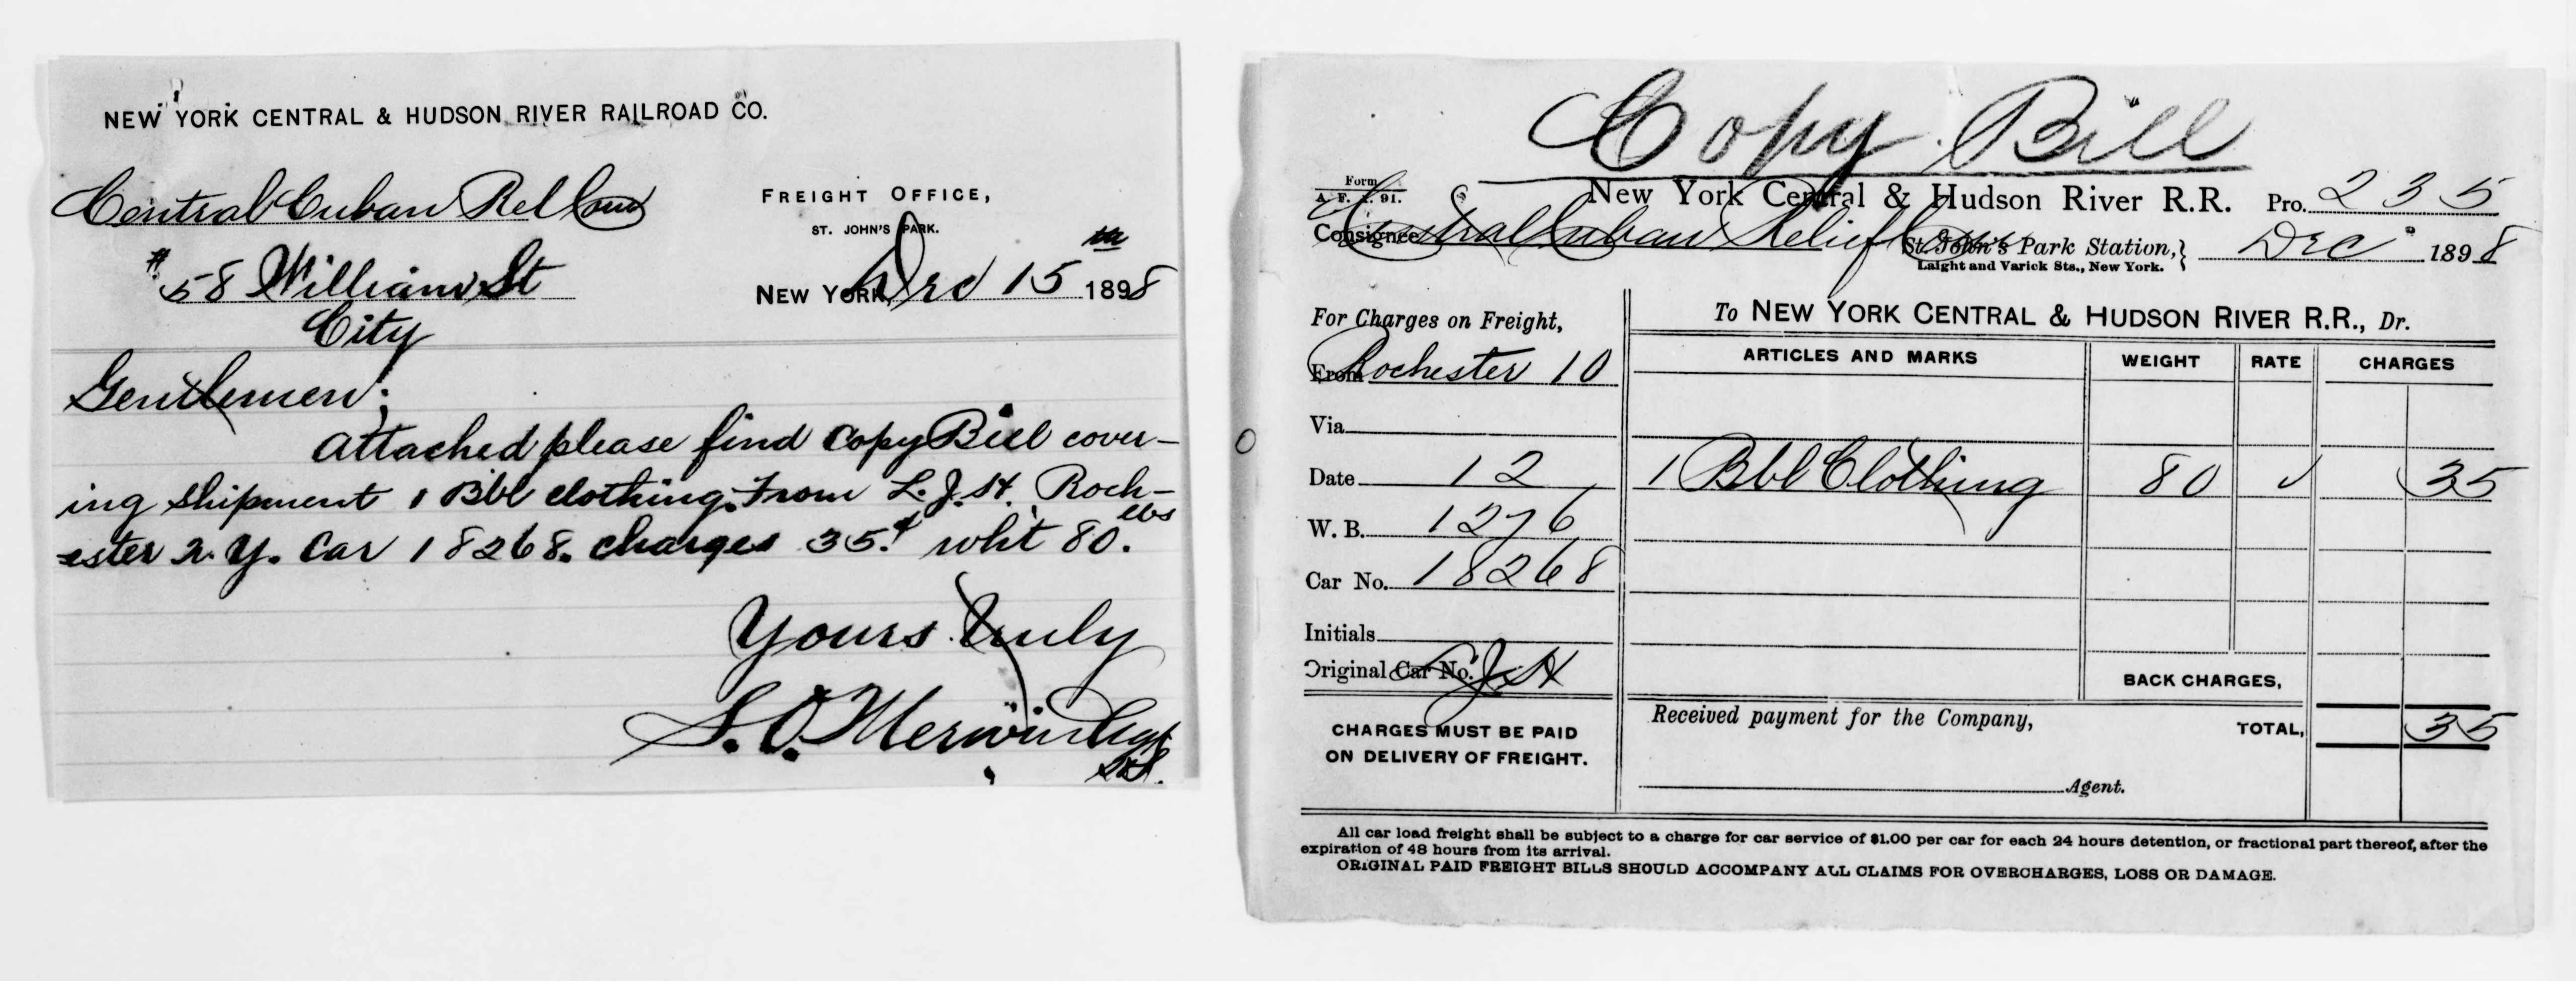 NEW YORK CENTRAL & HUDSON RIVER RAILROAD CO.
Central Cuban Rel Com
FREIGHT OFFICE,
ST. JOHN'S PARK.
# 58 William St
NEW YORK, Dec 15 th 1898
City
Gentlemen;
Attached please find Copy Bill cover-
ing shipment 1 Bbl clothing. From L.J.H. Roch-
ester N.Y. Car 18268. charges 35.¢ wht 80. lbs
Yours truly
S.O. Merwin Agt
Copy Bill
Form
A. F. 91.
New York Central & Hudson River R.R. Pro. 235
Consignee Central Cuban Relief Com
St. John's Park Station, } Dec 1898
Laight and Varick Sts., New York.
For Charges on Freight,
To NEW YORK CENTRAL & HUDSON RIVER R.R., Dr.
From Rochester 10
ARTICLES AND MARKS WEIGHT RATE CHARGES
Via
Date 12
1 Bbl Clothing 80 ✓ 35
W. B. 1276
Car No. 18268
Initials
Original Car No. L.J.H
BACK CHARGES,
CHARGES MUST BE PAID
ON DELIVERY OF FREIGHT.
Received payment for the Company,
TOTAL, 35
Agent.
All car load freight shall be subject to a charge for car service of $1.00 per car for each 24 hours detention, or fractional part thereof, after the
expiration of 48 hours from its arrival.
ORIGINAL PAID FREIGHT BILLS SHOULD ACCOMPANY ALL CLAIMS FOR OVERCHARGES, LOSS OR DAMAGE.